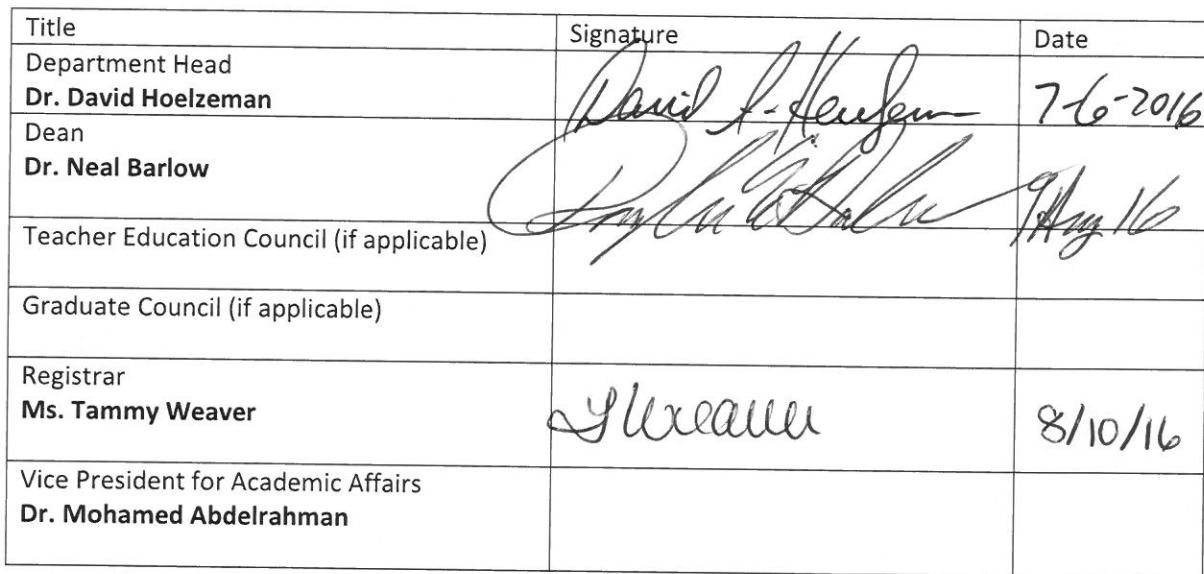 Title Signature Date
Department Head
Dr. David Hoelzeman David 7-6-2016
Dean
Dr. Neal Barlow 9 Aug 16
Teacher Education Council (if applicable)
Graduate Council (if applicable)
Registrar
Ms. Tammy Weaver TWeaver 8/10/16
Vice President for Academic Affairs
Dr. Mohamed Abdelrahman